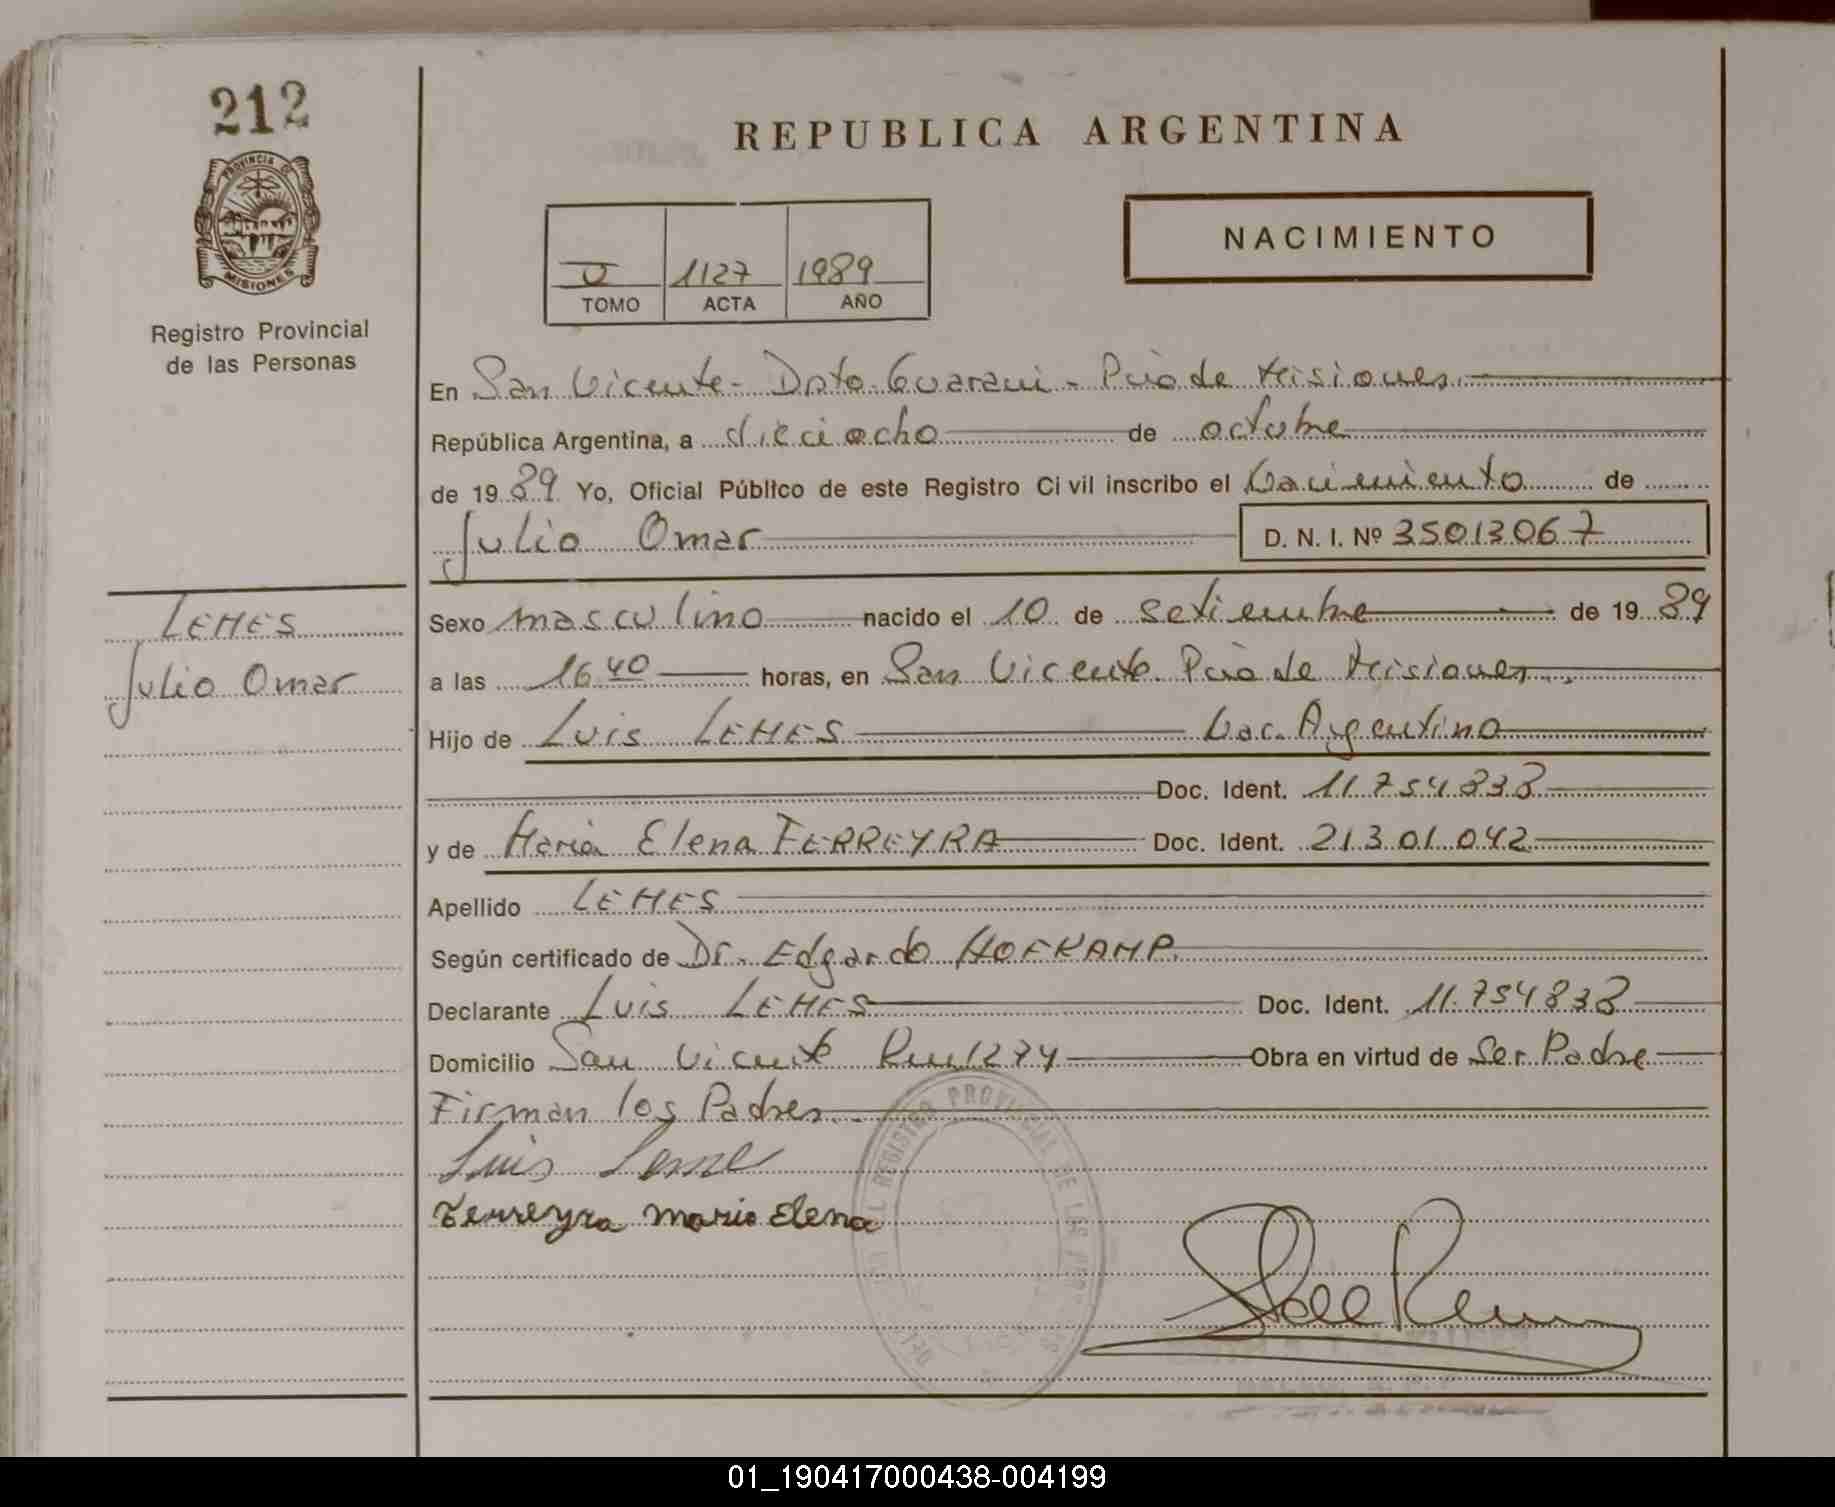 212
PROVINCIA DE
MISIONES
Registro Provincial
de las Personas
REPUBLICA ARGENTINA
NACIMIENTO
V 1127 1989
TOMO ACTA AÑO
En San Vicente - Dpto. Guarani - Pcia de Misiones.
República Argentina, a dieciocho de octubre
de 1989 Yo, Oficial Público de este Registro Civil inscribo el Nacimiento de
Julio Omar D. N. I. Nº 35013067
LEMES
Julio Omar
Sexo masculino nacido el 10 de setiembre de 1989
a las 16 40 horas, en San Vicente Pcia de Misiones
Hijo de Luis LEMES Nac. Argentino
Doc. Ident. 11.754.838
y de Maria Elena FERREYRA Doc. Ident. 21.301.042
Apellido LEMES
Según certificado de Dr. Edgardo HOFKAMP.
Declarante Luis LEMES Doc. Ident. 11.754.838
Domicilio San Vicente Rn 1274 Obra en virtud de Ser Padre
Firman los Padres.
Luis Leme
Ferreyra Maria Elena
REGISTRO PROVINCIAL DE LAS
01_190417000438-004199